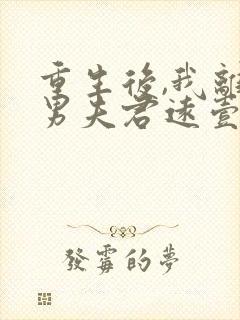 重生後,我離
男夫君遠壹
發霉的夢